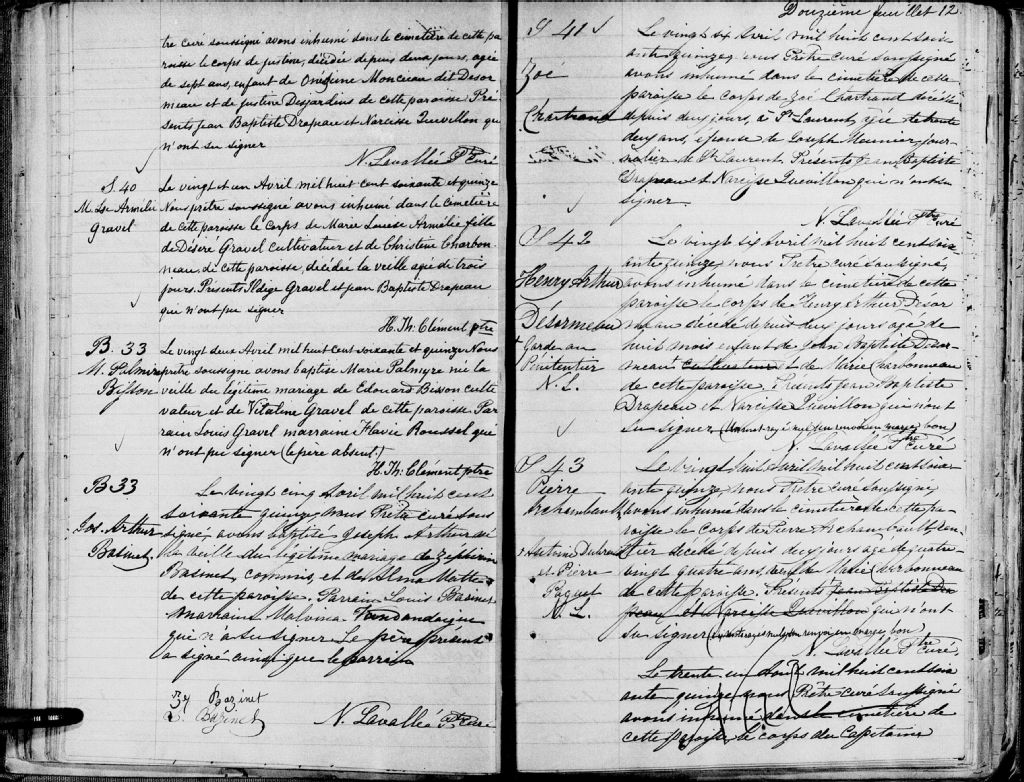 tre curé soussigné avons inhumé dans le cimetière de cette pa
roisse le corps de Justine, décédée depuis deux jours, agée
de sept ans, enfant de Onézime Monceau dit Desor
meau et de Justine Desjardins de cette paroisse. Pré
sents Jean Baptiste Drapeau et Narcisse Quevillon qui
n'ont su signer
N. Lavallée Ptre Curé
S. 40
M. Lse Armélie
Gravel
Le vingt et un Avril mil huit cent soixante et quinze
Nous prêtre soussigné avons inhumé dans le cimetière
de cette paroisse le corps de Marie Louise Armélie fille
de Désiré Gravel cultivateur et de Christine Charbon
neau, de cette paroisse, décédée la veille agée de trois
jours. Présents Gravel et Jean Baptiste Drapeau
qui n'ont pu signer
H. Th: Clément ptre
B. 33
M. Palmyre
Bisson
Le vingt deux Avril mil huit cent soixante et quinze Nous
prêtre soussigné avons baptisé Marie Palmyre née la
veille du légitime mariage de Edouard Bisson culti
vateur et de Vitaline Gravel de cette paroisse. Par
rain Louis Gravel marraine Flavie Roussel qui
n'ont pu signer (le père absent.)
H. Th: Clément ptre
B 33
Jos. Arthur
Bazinet
Le vingt cinq Avril mil huit cent
soixante quinze, nous Prêtre curé sous
signé, avons baptisé Joseph Arthur né
la veille du légitime mariage de Zephirin
Bazinet, commis, et de Alma Matte
de cette paroisse. Parrain Louis Bazinet
Marraine Malvina Vendandaigue
qui n'a su signer. Le père présent
a signé ainsi que le parrain
Bazinet
L. Bazinet
N. Lavallée Ptre Curé
Douzième feuillet 12.
S 41
Zoé
Chartrand
Le vingt six Avril mil huit cent soix
ante quinze, nous Prêtre curé soussigné
avons inhumé dans le cimetière de cette
paroisse le corps de Zoé Chartrand décédée
depuis deux jours, à St Laurent, agée de trente
deux ans, épouse de Joseph Meunier, jour
nalier de St Laurent. Présents Jean Baptiste
Drapeau et Narcisse Quevillon qui n'ont su
signer
N. Lavallée Ptre Curé
S 42
Henry Arthur
Desormeau
Garde au
Pénitentier
N. L.
Le vingt six Avril mil huit cent soix
ante quinze, nous Prêtre curé soussigné,
avons inhumé dans le cimetière de cette
paroisse le corps de Henry Arthur Desor
meau décédé depuis deux jours agé de
huit mois enfant de John Baptiste Desor
meau cultivateur et de Marie Charbonneau
de cette paroisse. Présents Jean Baptiste
Drapeau et Narcisse Quevillon qui n'ont
su signer (Un mot rayé nul, un renvoi en marge, bon)
N. Lavallée Ptre Curé
S 43
Pierre
Archambault
Antoine
et Pierre
Paquet
N. L.
Le vingt huit Avril mil huit cent soix
ante quinze, nous Prêtre curé soussigné,
avons inhumé dans le cimetière de cette pa
roisse le corps de Pierre Archambault, ren
tier décédé depuis deux jours agé de quatre
vingt quatre ans, veuf de Marie Charbonneau
de cette paroisse. Présents Jean Baptiste Dra
peau et Narcisse Quevillon qui n'ont
su signer renvoi en marge, bon)
N. Lavallée Ptre Curé
Le trente un mil huit cent soix
ante quinze, nous Prêtre curé soussigné
avons inhumé dans le cimetière de
cette paroisse le corps du Capitaine